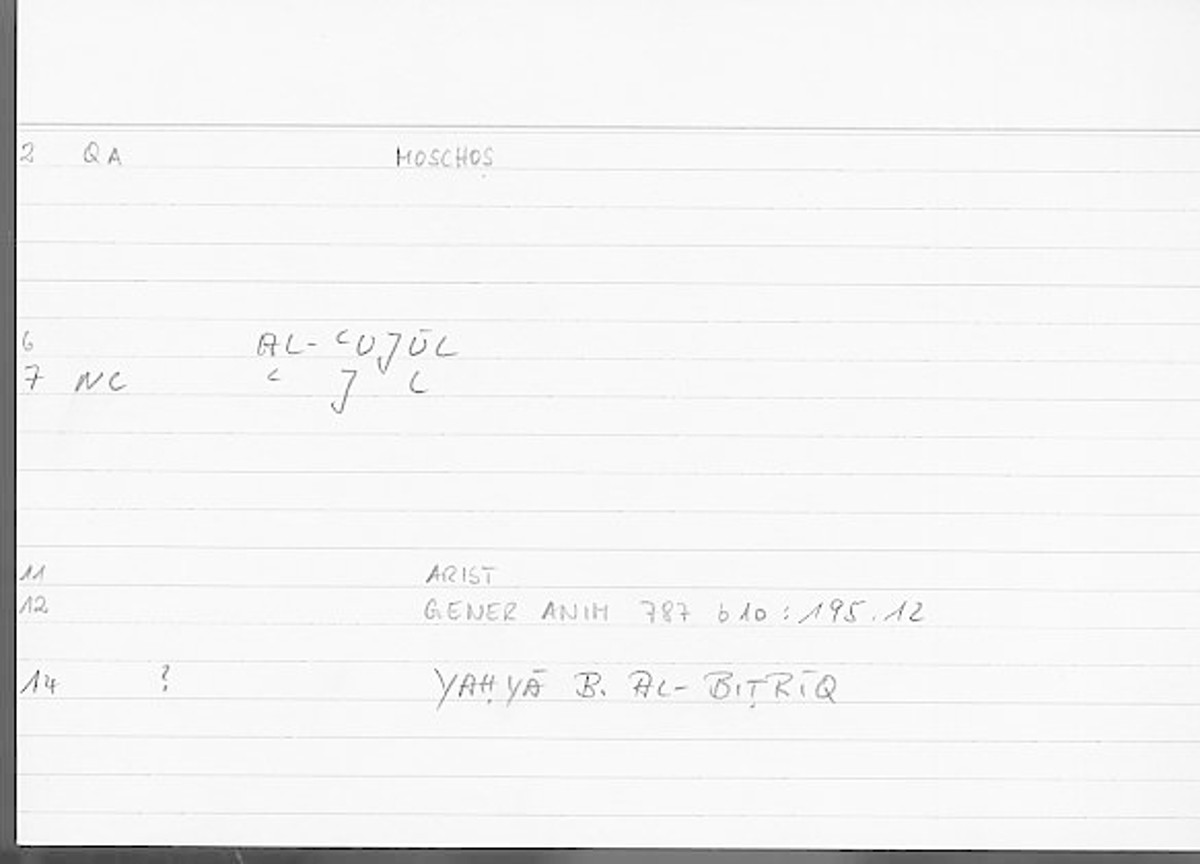 2 QA MOSCHOS
6 AL-ʿUJŪL
7 NC ʿ J L
11 ARIST
12 GENER ANIM 787 b10 : 195.12
14 ? YAḤYĀ B. AL-BIṬRĪQ